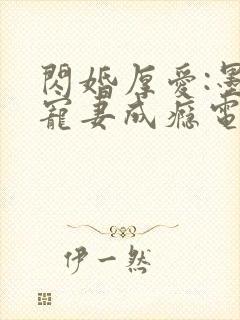 閃婚厚愛:墨
寵妻成癮電
伊一然